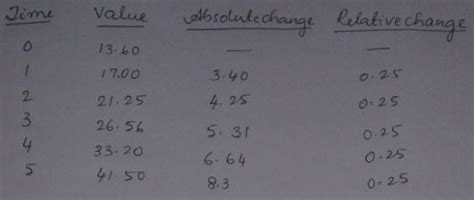 Time Value Absolute change Relative change
0 13.60 — —
1 17.00 3.40 0.25
2 21.25 4.25 0.25
3 26.56 5.31 0.25
4 33.20 6.64 0.25
5 41.50 8.3 0.25